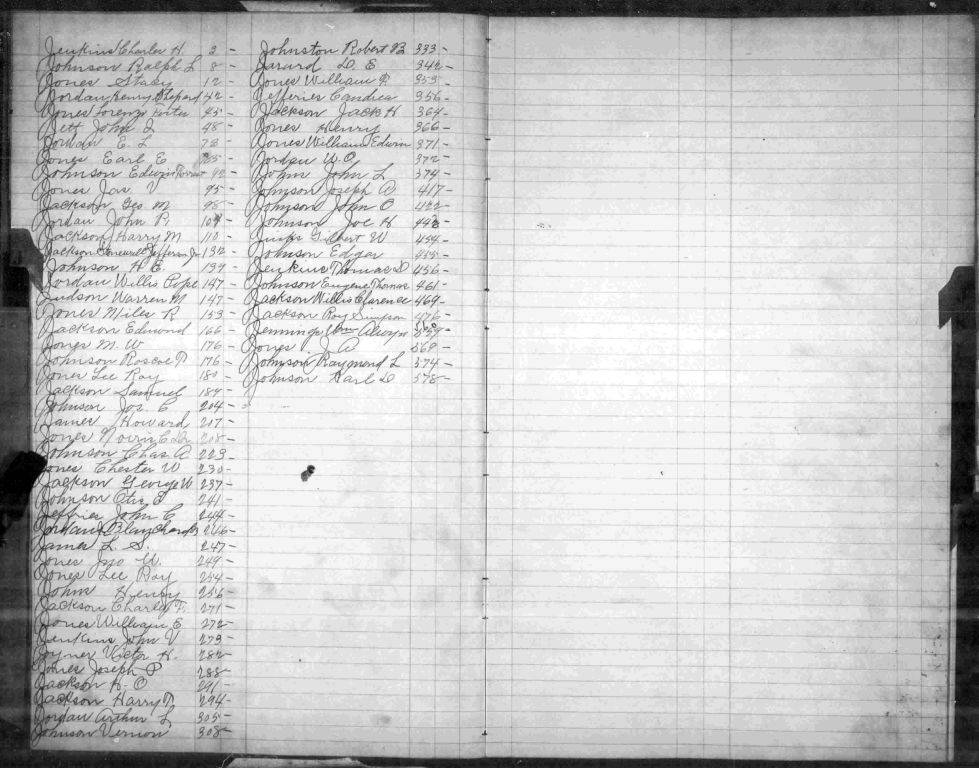 Jenkins Charles H. 2 -
Johnson Ralph L 8 -
Jones Stacy 12 -
Jordan Henry Shepard 42 -
Jones Lorenzo Porter 45 -
Jett John J 48 -
Jordan E. L 73 -
Jones Earl E
Johnson Edwin Forrest 92 -
Jones Jas. V 95 -
Jackson Geo M 98 -
Jordan John P. 109 -
Jackson Harry M 110 -
Jackson Stonewall Jefferson Jr 132 -
Johnson H. E. 139 -
Jordan Willis Pope 147 -
Judson Warren M 147 -
Jones Miles R 153 -
Jackson Edmond 166 -
Jones M. W 176 -
Johnson Roscoe T 176 -
Jones Lee Roy 180 -
Jackson Samuel 184 -
Johnson Jos. E 204 -
James Howard 207 -
Jones 208 -
Johnson Chas. A 223 -
Jones Chester W 230 -
Jackson George W 237 -
Johnson Otis 241 -
Jeffries John C 244 -
Jordan 246 -
James L. S. 247 -
Jones Jno W. 249 -
Jones Lee Roy 254 -
Johns Henry 256 -
Jackson Charley F. 271 -
Jones William E 272 -
Jenkins John V 273 -
Joyner Victor H. 282 -
Jones Joseph P 288 -
Jackson H. O 291 -
Jackson Harry T 294 -
Jordan Arthur L 305 -
Johnson Vernon 308 -
Johnston Robert B 333 -
Jarard D. E 342 -
Jones William P. 353 -
Jefferies Candies 356 -
Jackson Jack H 364 -
Jones Henry 366 -
Jones William Edwin 371 -
Jordan W. O. 372 -
Johns John L 374 -
Johnson Joseph A. 417 -
Johnson John O 422 -
Johnson Joe H 442 -
Gilbert W 454 -
Johnson Edgar 455 -
Jenkins Thomas D 456 -
Johnson Eugene Thomas 461 -
Jackson Willis Clarence 469 -
Jackson Roy Simpson 476 -
Jennings Wm Alwyn
Jones J. A 569 -
Johnson Raymond L 574 -
Johnson Karl D 578 -